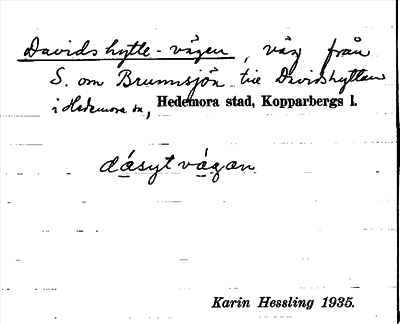 Davidshytte-vägen, väg från
S. om Brunnsjön till Davidshyttan
i Hedemora sn, Hedemora stad, Kopparbergs l.
dásytvágan
Karin Hessling 1935.